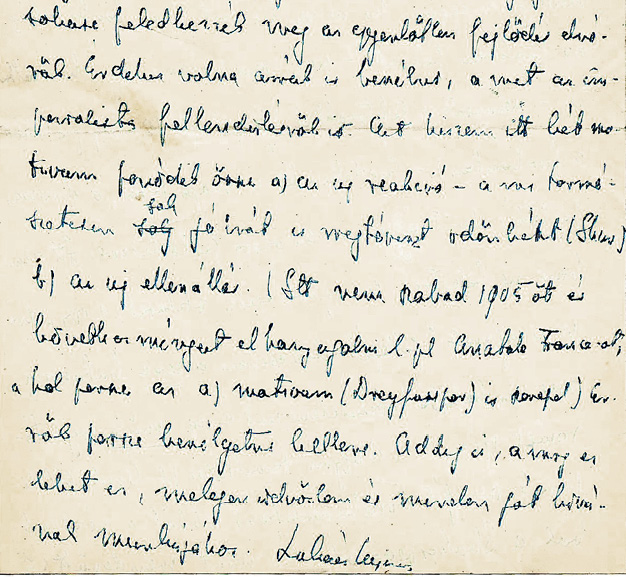 sohase feledkezzék meg az egyenlőtlen fejlődés elvé-
ről. Érdekes volna arról is beszélni, a mit az im-
perialista fellendülésről ír. Azt hiszem itt két mo-
tivum fonódik össze a) az uj reakció – a mi termé-
szetesen sok jó írót is megtéveszt időnként (Shaw)
b) az uj ellenállás. (Itt nem szabad 1905öt és
következményeit elhanyagolni l. pl Anatole France-ot,
a hol persze az a) motivum (Dreyfusspör) is szerepel) Er-
ről persze beszélgetni kellene. Addig is, a mig ez
lehet ez, melegen üdvözlöm és minden jót kivá-
nok munkájához. Lukács György